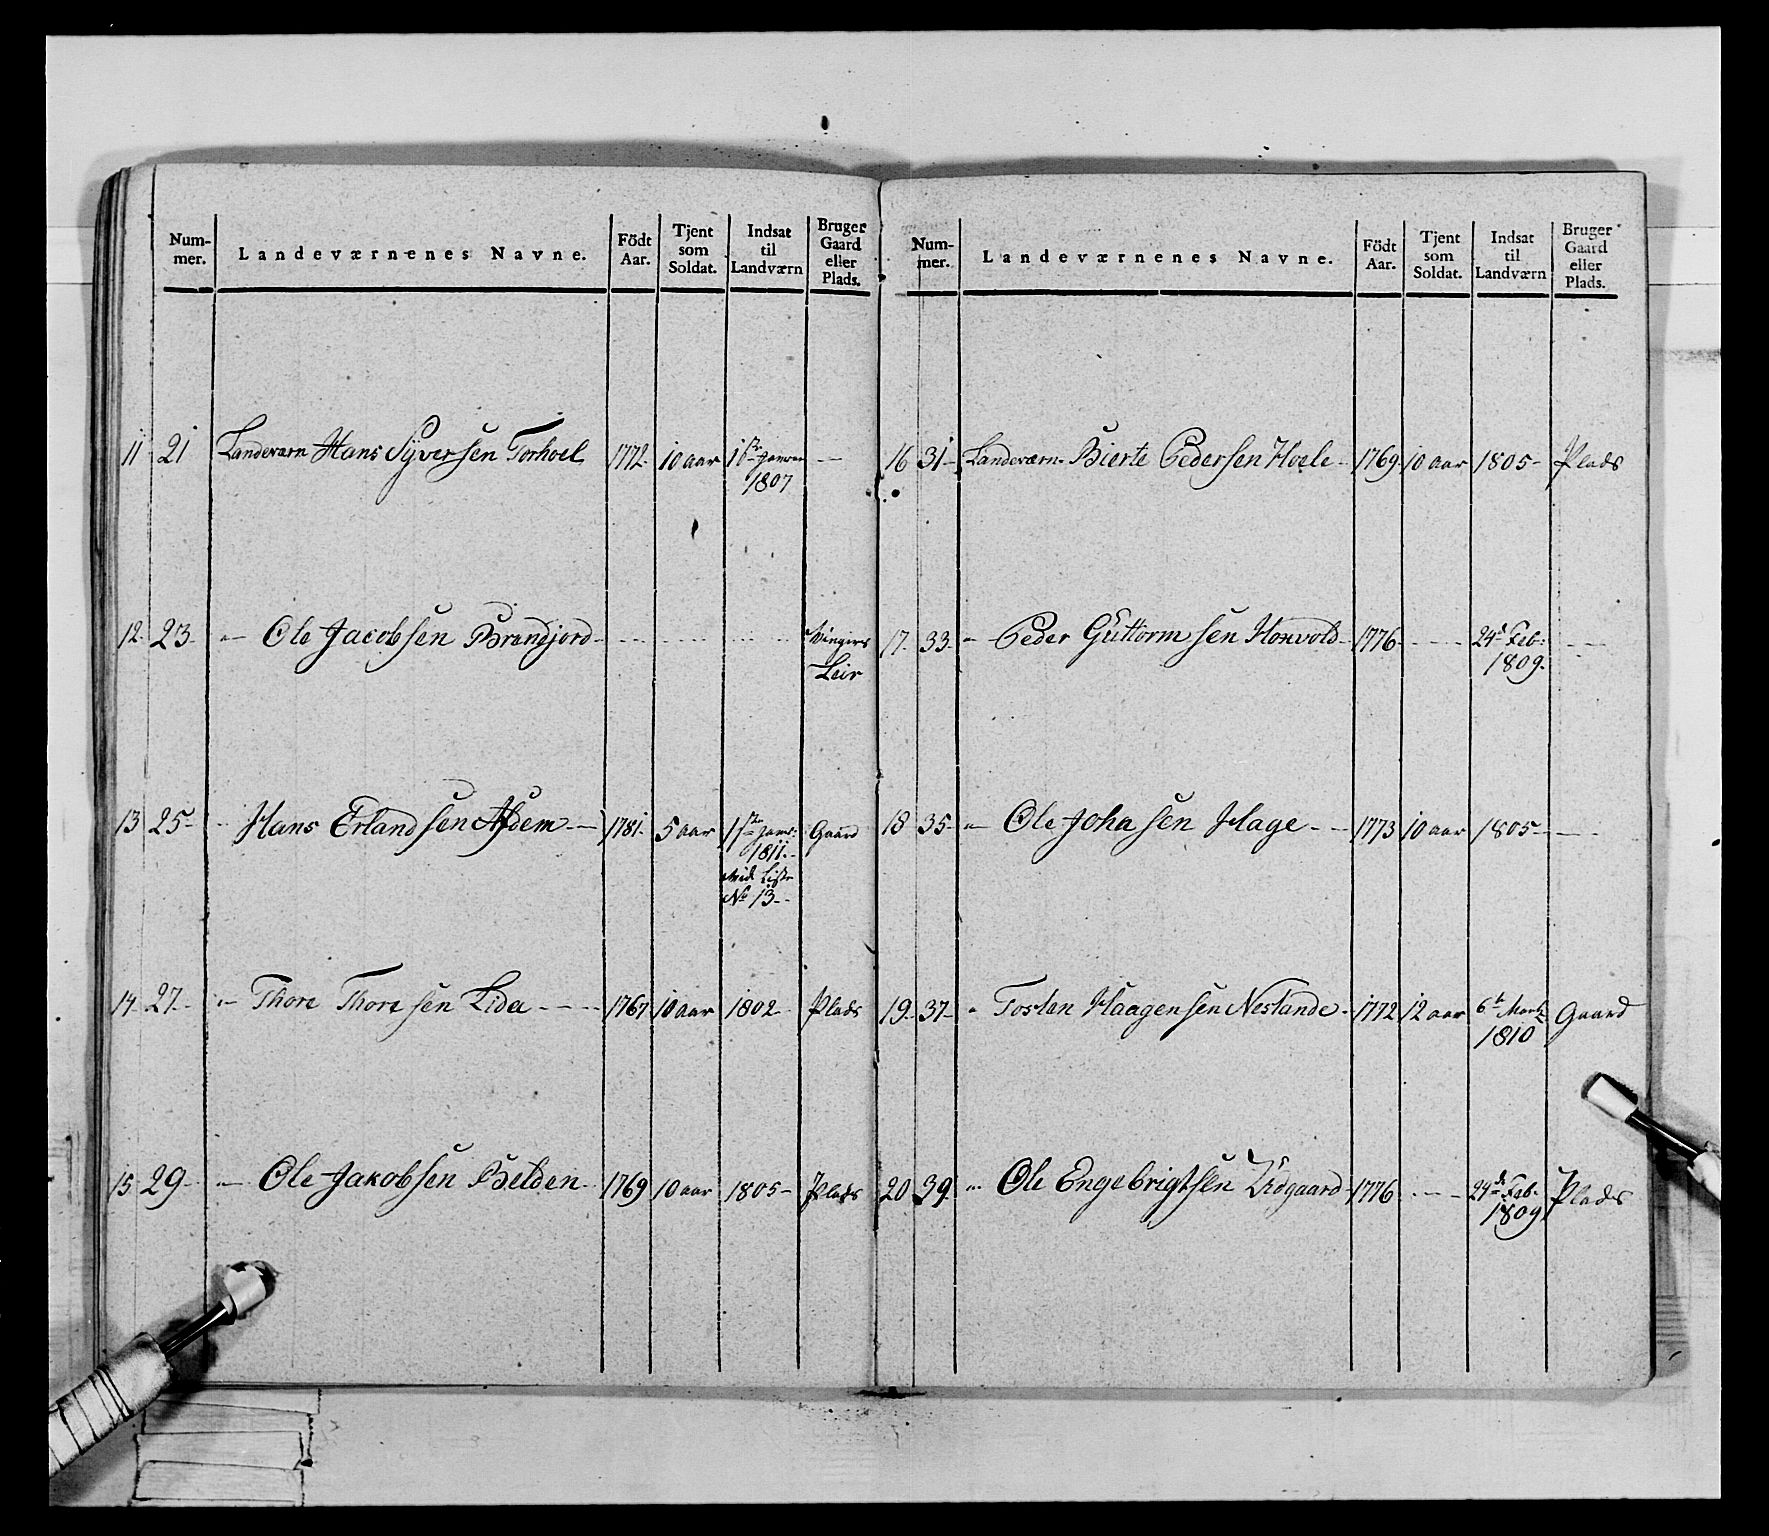 Num-
mer.
Landeværnenes Navne.
Födt
Aar.
Tjent
som
Soldat.
Indsat
til
Landværn
Bruger
Gaard
eller
Plads.
11 21 Landeværn Hans Syversen Torhoel 1772 10 aar 1ste Januar —
1807
12 23 — Ole Jacobsen Brandjord Vingers
Leir
13 25 Hans Erlandsen 1781 5 aar 1ste Janv: Gaard
1811
vide Liste
No 13
14 27 — Thore Thoresen Lida 1767 10 aar 1802 Plads
15 29 — Ole Jakobsen Belden 1769 10 aar 1805 Plads
Num-
mer.
Landeværnenes Navne.
Födt
Aar.
Tjent
som
Soldat.
Indsat
til
Landværn
Bruger
Gaard
eller
Plads.
16 31 Landeværn Bierte Pedersen Hoele 1769 10 aar 1805 Plads
17 33 — Peder Guttormsen Honvold 1776 24d Feb:
1809
18 35 — Ole Johasen Hage 1773 10 aar 1805
19 37 Tosten Haagensen Neslande 1772 12 aar 6te Martz Gaard
1810
20 39 Ole Engebrigtsen Lidgaard 1776 24de Feb. Plads
1809